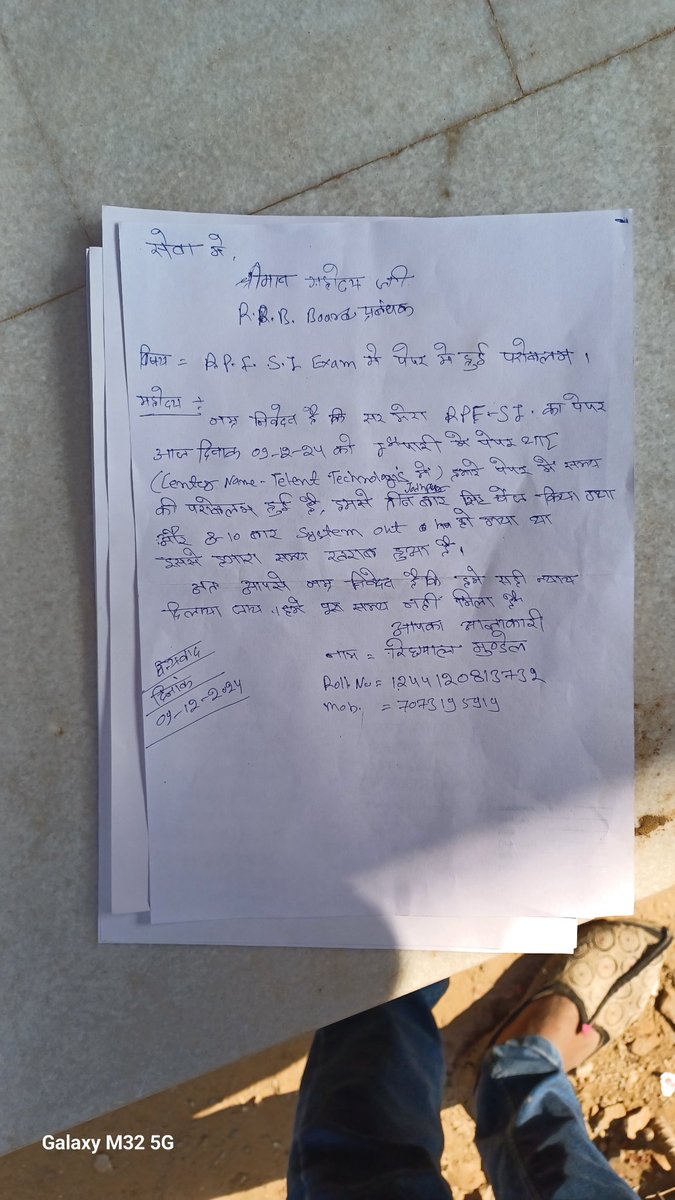 सेवा मे,
श्रीमान महोदय जी
R.R.B. Board प्रबंधक
विषय = R.P.F. S.I Exam मे पेपर मे हुई परोबलम ।
महोदय :-
नम्र निवेदन है कि सर मेरा RPF-SI का पेपर
आज दिनांक 09-12-24 को पारी मे पेपर था,
(Center Name - Telent Technologis मे) हमारे पेपर मे समय
Jodhpur
की परोबलम हुई है, हमसे तीन बार सिट चेंज किया गया
और 8-10 बार System out हो गया था
इससे हमारा समय खराब हुआ है ।
अतः आपसे नम्र निवेदन है कि हमे सही न्याय
दिलाया जाय । हमे पुरा समय नहीं मिला है
आपका आज्ञाकारी
नाम = रिछपाल गुण्डेल
धन्यवाद
Roll No = 1244120813732
दिनांक
Mob. = 7073195919
09-12-2024
Galaxy M32 5G